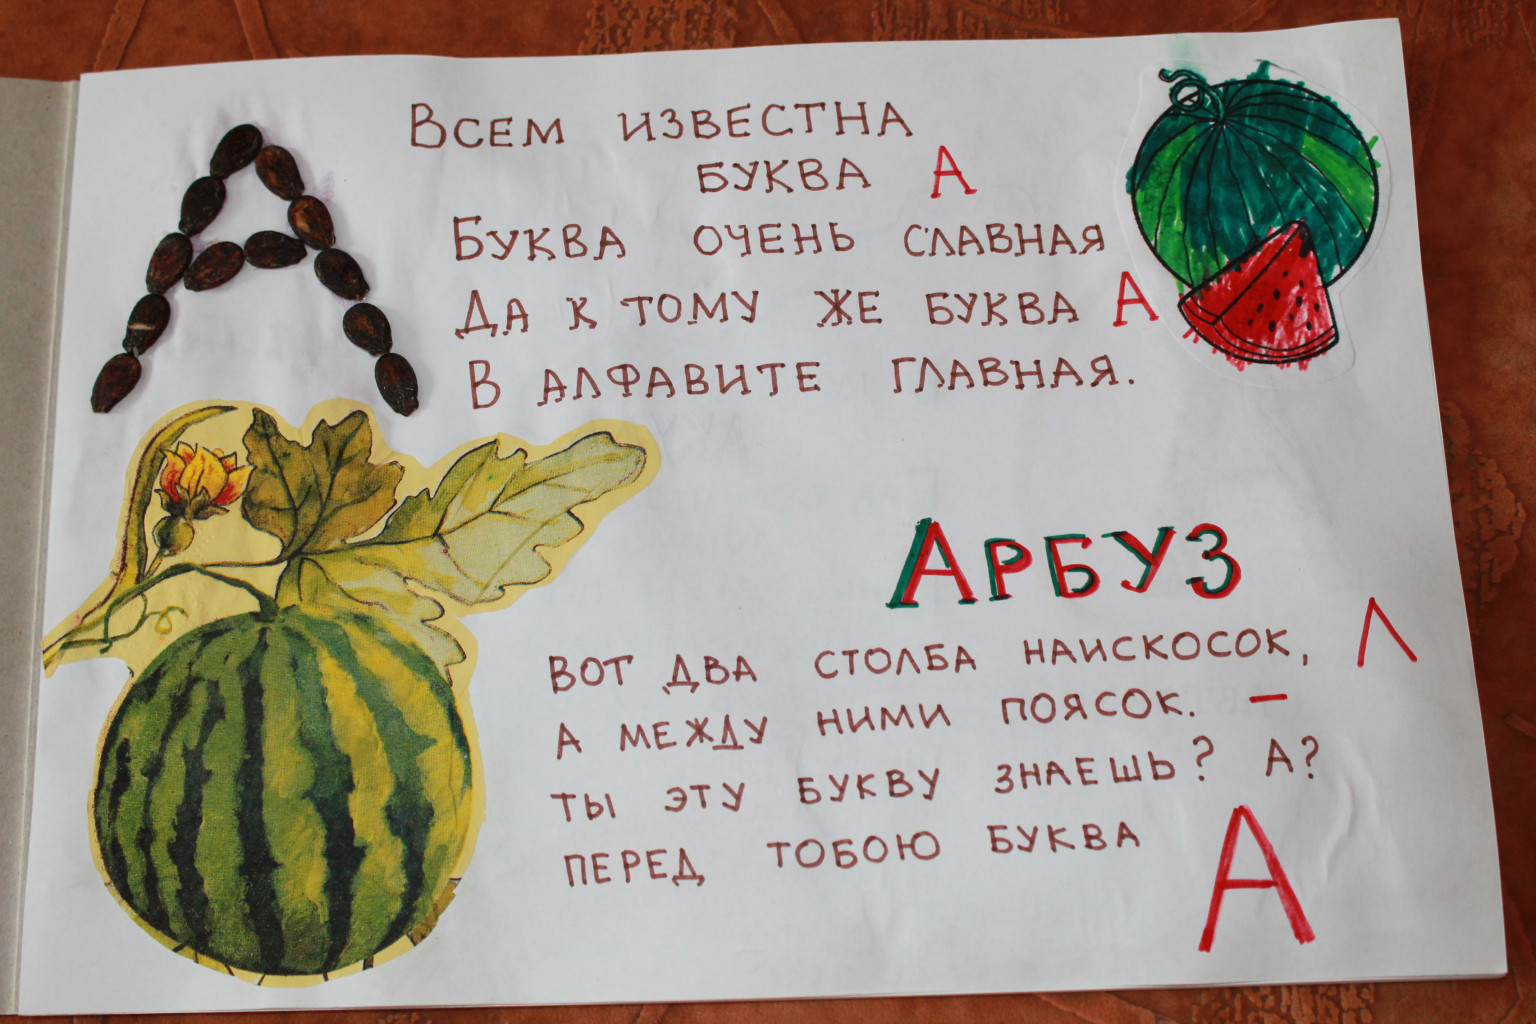 Всем известна
буква А
Буква очень славная
Да к тому же буква А
В алфавите главная.
Арбуз
вот два столба наискосок, Л
а между ними поясок. –
ты эту букву знаешь? А?
перед тобою буква А